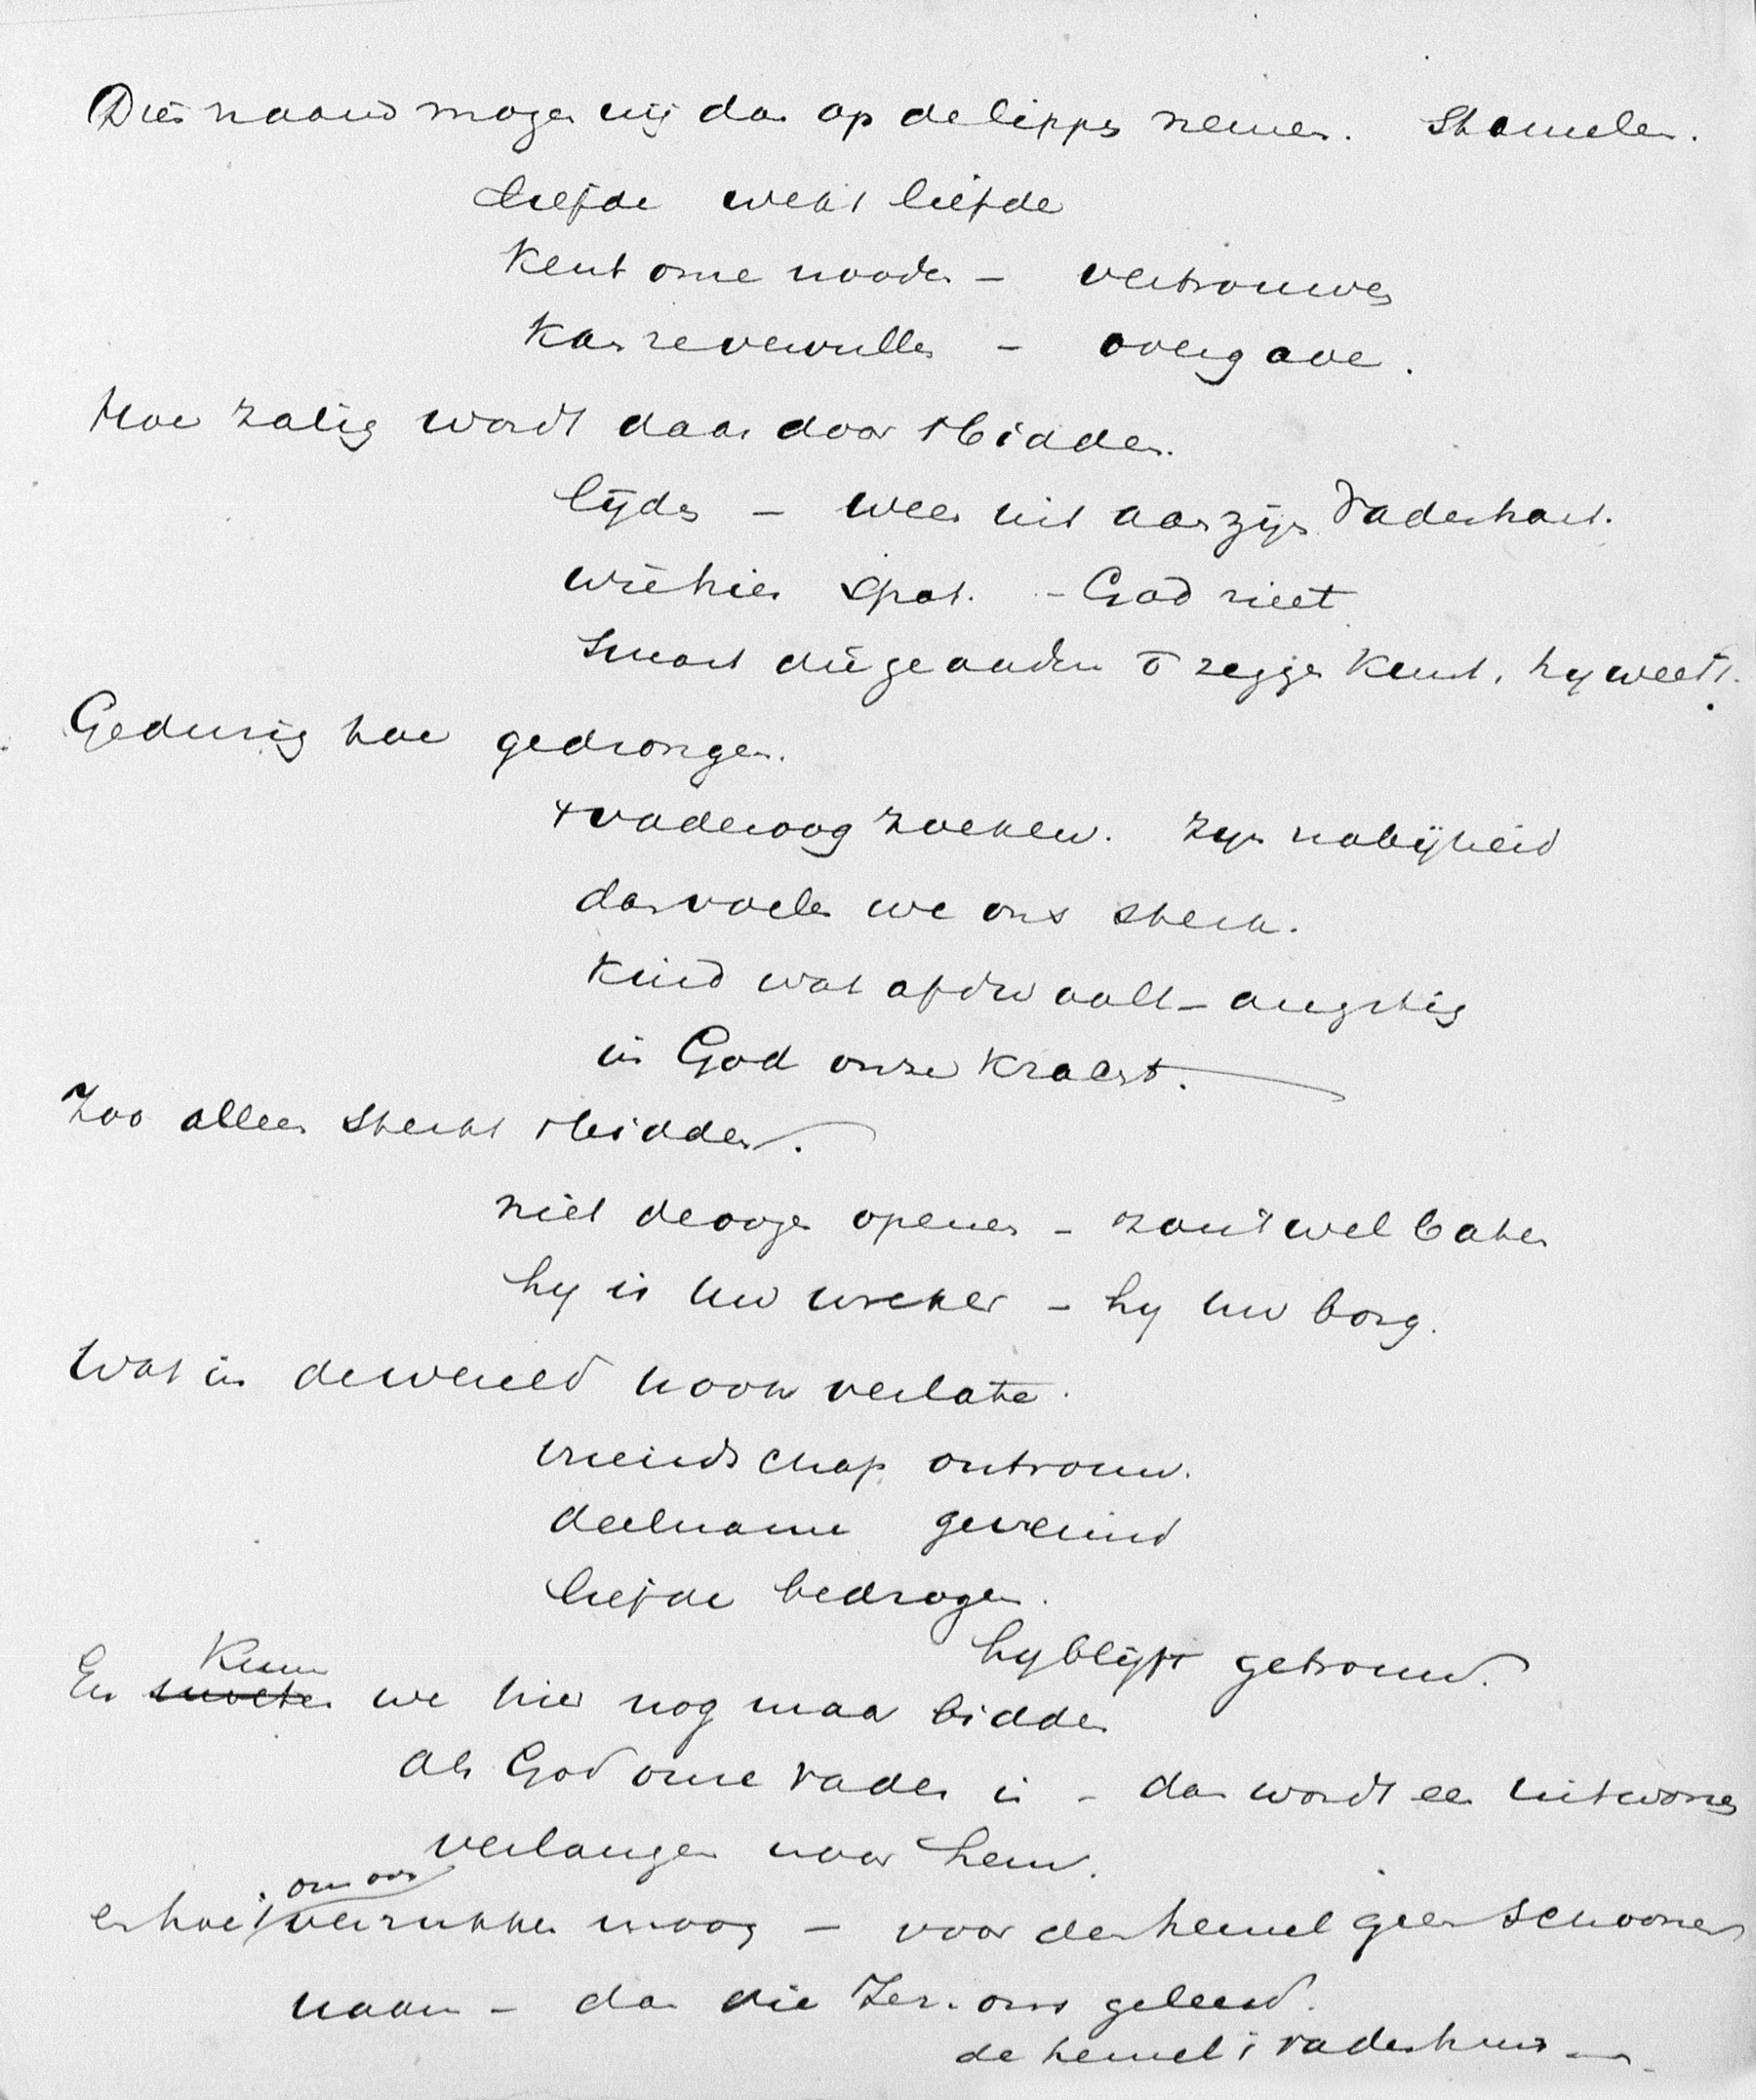 Die naam mogen wij dan op de lippen nemen. Stamelen.
liefde wekt liefde
Kent onze nooden – vertrouwen
Kan ze vervullen – overgave.
Hoe zalig wordt daar door 't bidden.
lijden – ween uit aan zijn Vaderhart.
wie hier spot. – God niet
Smart die ge anderen ō zeggen kunt, hy weet 't.
Gedurig hoe gedrongen.
't vaderoog zoeken. Zyn nabijheid
dan voelen we ons sterk.
Kind wat afdwaalt – angstig
in God onze kracht.
Zoo alleen sterkt 't bidden.
niet de oogen openen – zou 't wel baten
hy is uw wreker – hy uw borg.
Wat in de wereld u ook verlate.
vriendschap ontrouw.
deelname geveinsd
liefde bedrogen.
hy blijft getrouw.
Kunn
En moeten we hier nog maar bidden
Als God onze vader is – dan wordt een
verlangen naar hem.
om ons
en hoe 't verrukken moog – voor den hemel geen schooner
naam – dan die Jez. ons geleerd.
de hemel 't vaderhuis —